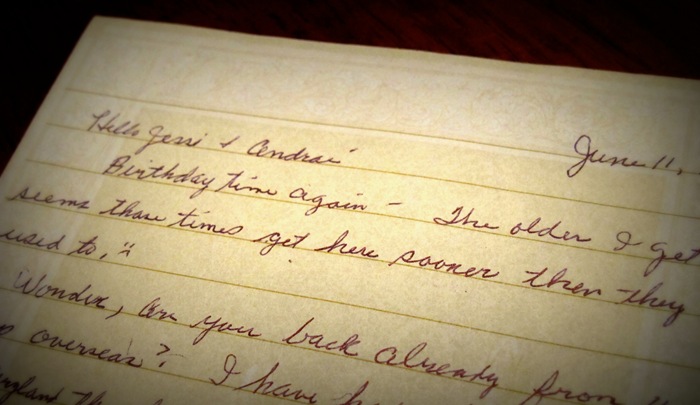 June 11,
Hello Jessi & Andrai
Birthday time again - The older I get
seems those times get here sooner then they
used to, "
Wonder, are you back already from
overseas? - I have